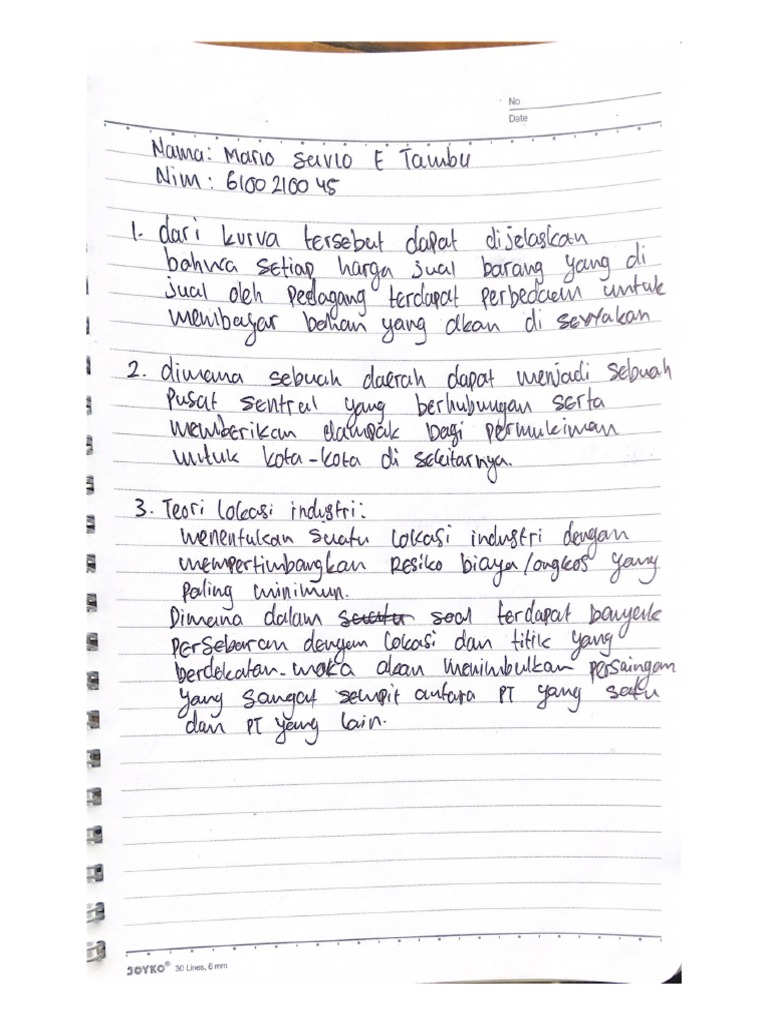 No
Date
Nama: Mario Savio E Tambu
Nim : 6100210045
1. dari kurva tersebut dapat dijelaskan
bahwa setiap harga jual barang yang di
jual oleh pedagang terdapat perbedaan untuk
membayar bahan yang akan di sewakan
2. dimana sebuah daerah dapat menjadi sebuah
pusat sentral yang berhubungan serta
memberikan dampak bagi permukiman
untuk kota-kota di sekitarnya.
3. Teori lokasi industri:
menentukan suatu lokasi industri dengan
mempertimbangkan Resiko biaya/ongkos yang
paling minimun.
Dimana dalam soal terdapat banyak
persebaran dengan lokasi dan titik yang
berdekatan maka akan menimbulkan persaingan
yang sangat sempit antara PT yang satu
dan PT yang lain.
JOYKO® 30 Lines, 6 mm